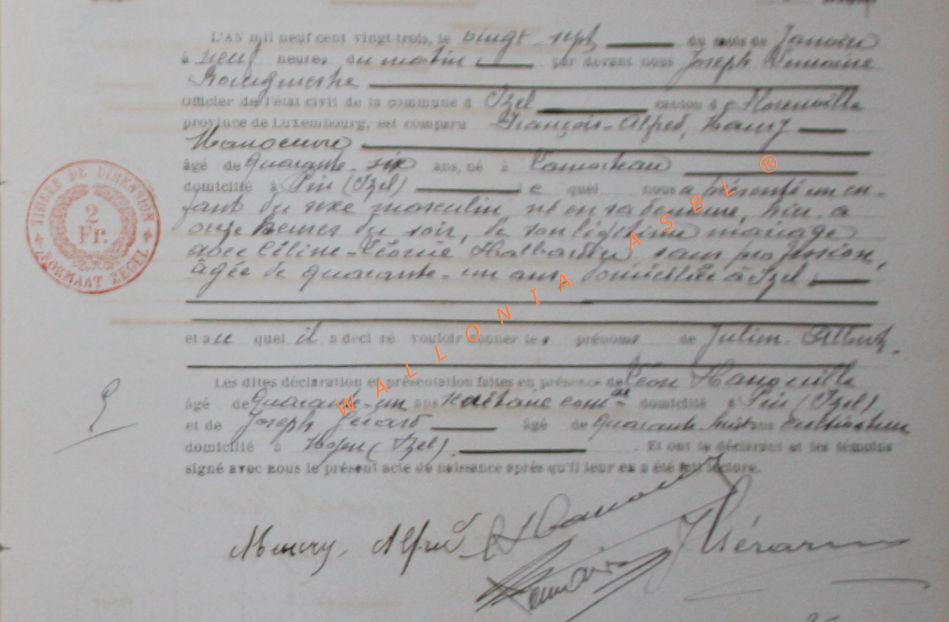 L'AN mil neuf cent vingt-trois, le vingt-sept du mois de Janvier
à neuf heures du matin par devant nous Joseph Lemaire
Bourgmestre
Officier de l'état civil de la commune d'Izel canton de Florenville
province de Luxembourg, est comparu François-Alfred, Maury
Manoeuvre
âgé de Quarante-six ans, né à
domicilié à Pin (Izel) le quel nous a présenté un en-
fant du sexe masculin né en sa demeure, hier à
onze heures du soir, de son légitime mariage
avec Céline-Léonie sans profession,
âgée de quarante-un ans domiciliée à Izel
et au quel il a déclaré vouloir donner les prénoms de Julien-Albert.
Les dites déclaration et présentation faites en présence de Léon
âgé de Quarante-un ans domicilié à Pin (Izel)
et de Joseph Gérard âgé de Quarante huit ans cultivateur
domicilié à Moyen (Izel). Et ont le déclarant et les témoins
signé avec nous le présent acte de naissance après qu'il leur en a été fait lecture.
Maury, Alfred
Lemaire
J Gérard
TIMBRE DE DIMENSION
2
Fr.
FORMAAT ZEGEL
WALLONIA ASBL ®